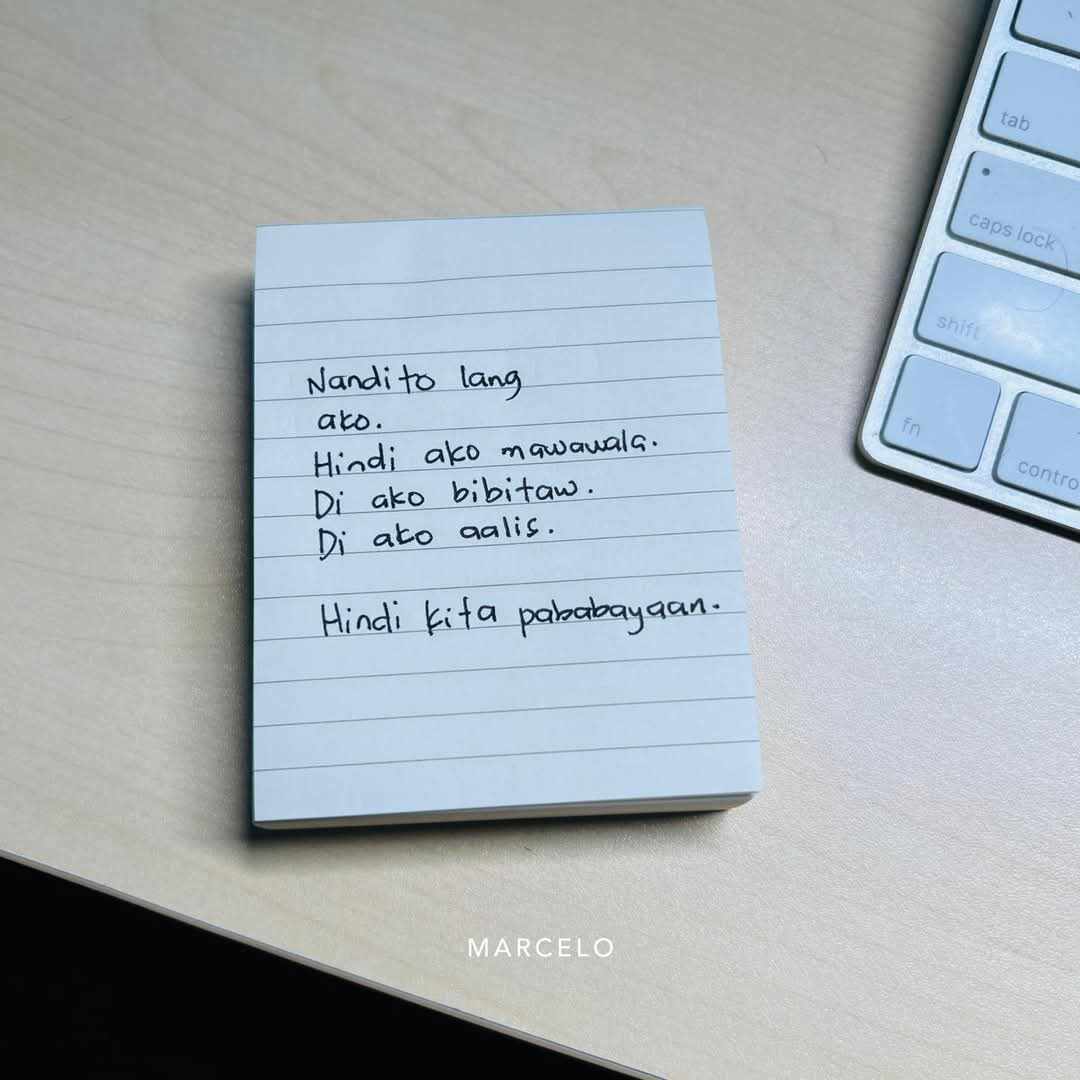 Nandito lang
ako.
Hindi ako mawawala.
Di ako bibitaw.
Di ako aalis.
Hindi kita pababayaan.
tab
caps lock
shift
fn
contro
MARCELO